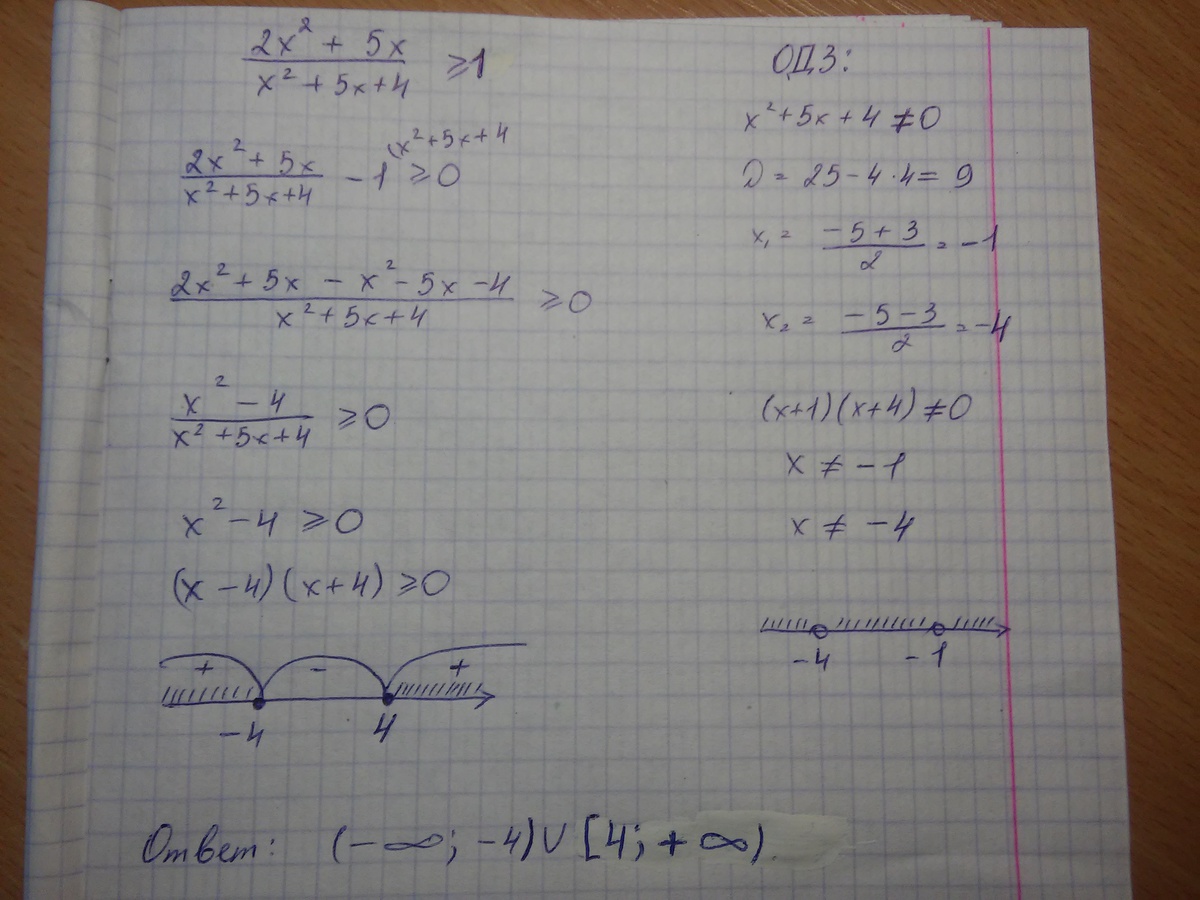 2x² + 5x / x² + 5x + 4 ≥ 1
2x² + 5x / x² + 5x + 4 - 1 (x² + 5x + 4 ≥ 0
2x² + 5x - x² - 5x - 4 / x² + 5x + 4 ≥ 0
x² - 4 / x² + 5x + 4 ≥ 0
x² - 4 ≥ 0
(x - 4)(x + 4) ≥ 0
+ - +
-4 4
ОДЗ:
x² + 5x + 4 ≠ 0
D = 25 - 4 · 4 = 9
x₁ = -5 + 3 / 2 = -1
x₂ = -5 - 3 / 2 = -4
(x+1)(x+4) ≠ 0
x ≠ -1
x ≠ -4
-4 -1
Ответ: (-∞; -4) ∪ [4; +∞).